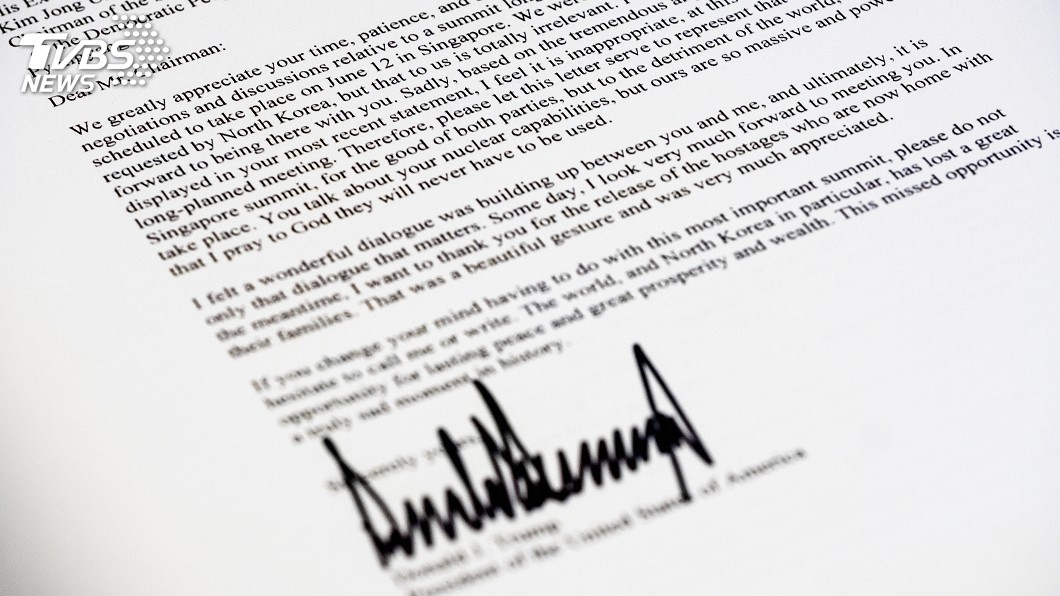 TVBS
NEWS
Kim Jong
Chairman of the
the Democratic Pe
Dear Mr. Chairman:
We greatly appreciate your time, patience, and
negotiations and discussions relative to a summit long
scheduled to take place on June 12 in Singapore. We were
requested by North Korea, but that to us is totally irrelevant. I
forward to being there with you. Sadly, based on the tremendous an
displayed in your most recent statement, I feel it is inappropriate, at this
long-planned meeting. Therefore, please let this letter serve to represent that
Singapore summit, for the good of both parties, but to the detriment of the world,
take place. You talk about your nuclear capabilities, but ours are so massive and powe
that I pray to God they will never have to be used.
I felt a wonderful dialogue was building up between you and me, and ultimately, it is
only that dialogue that matters. Some day, I look very much forward to meeting you. In
the meantime, I want to thank you for the release of the hostages who are now home with
their families. That was a beautiful gesture and was very much appreciated.
If you change your mind having to do with this most important summit, please do not
hesitate to call me or write. The world, and North Korea in particular, has lost a great
opportunity for lasting peace and great prosperity and wealth. This missed opportunity is
a truly sad moment in history.
Donald J. Trump
President of the United States of America